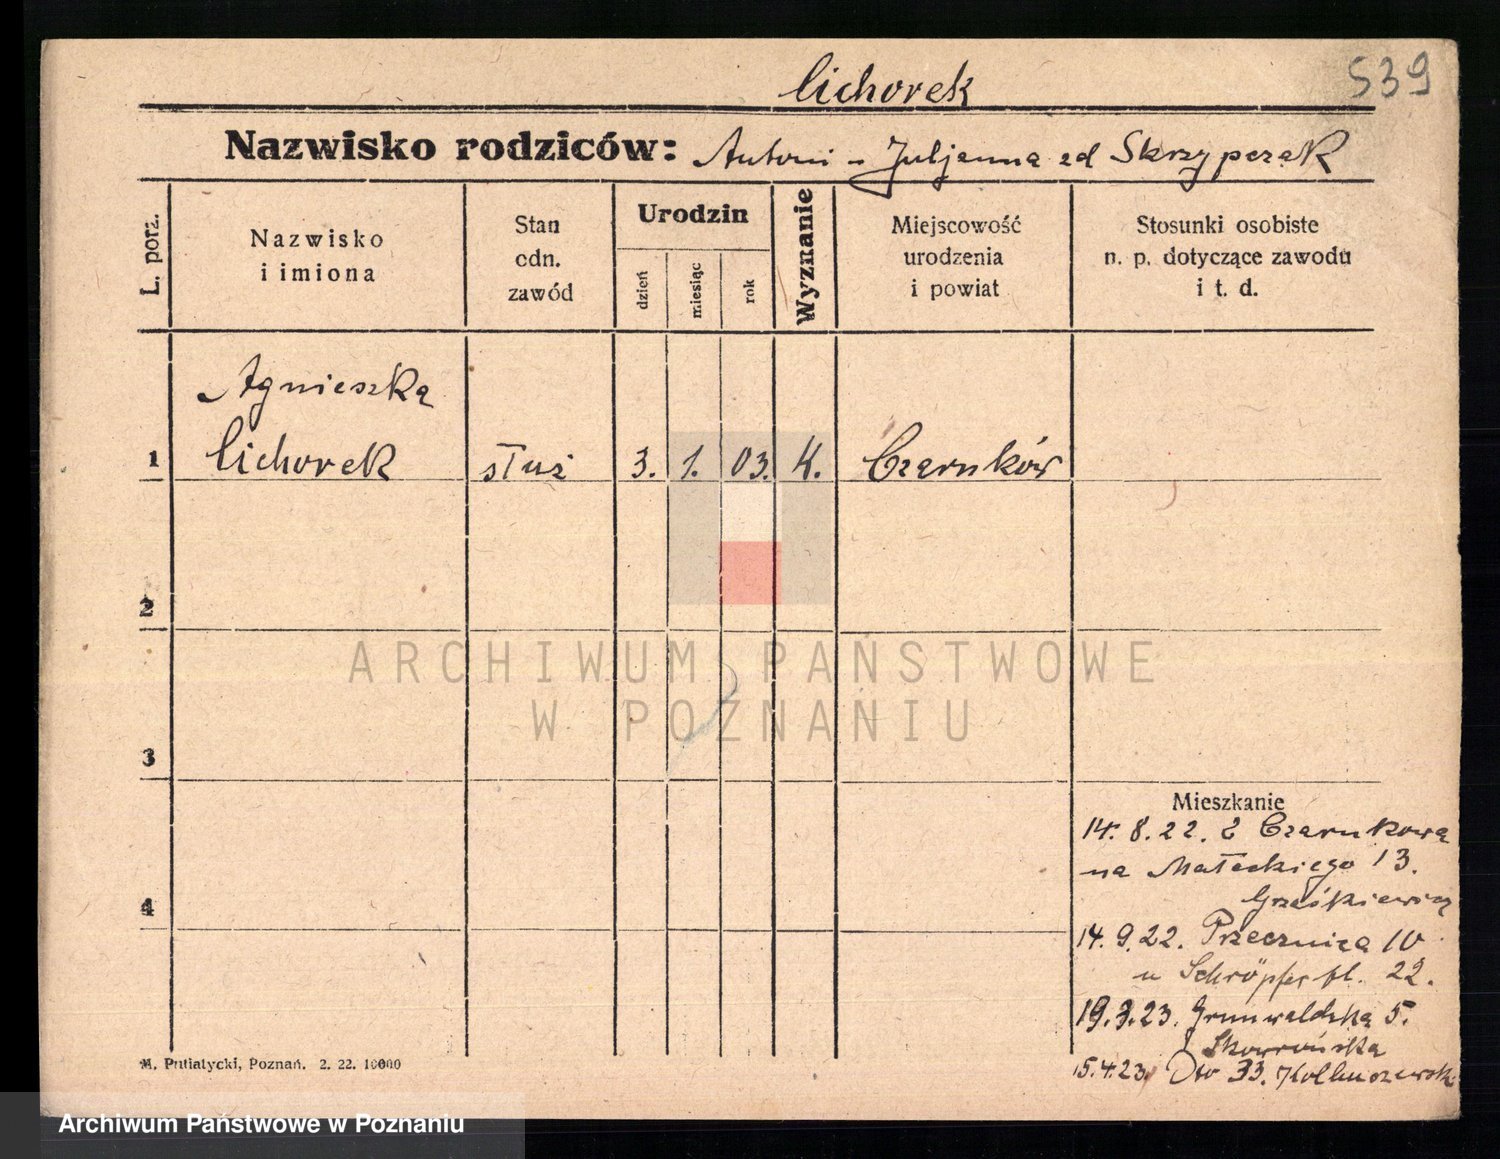 Cichorek
539
Nazwisko rodziców: Antoni - Juljanna zd Skrzypczak
L. porz.
Nazwisko
i imiona
Stan
odn.
zawód
Urodzin
dzień
miesiąc
rok
Wyznanie
Miejscowość
urodzenia
i powiat
Stosunki osobiste
n. p. dotyczące zawodu
i t. d.
Agnieszka
1 Cichorek służ 3. 1. 03. K. Czarnków
2
ARCHIWUM PAŃSTWOWE
W POZNANIU
3
Mieszkanie
14. 8. 22. z Czarnkowa
na Małeckiego 13.
4
14. 9. 22. Przecznica 10
u Schröpfer fl. 22.
19. 3. 23. Grunwaldzka 5.
Skowrońska
15.4.23. 33.
M. Putiatycki, Poznań. 2. 22. 10000
Archiwum Państwowe w Poznaniu